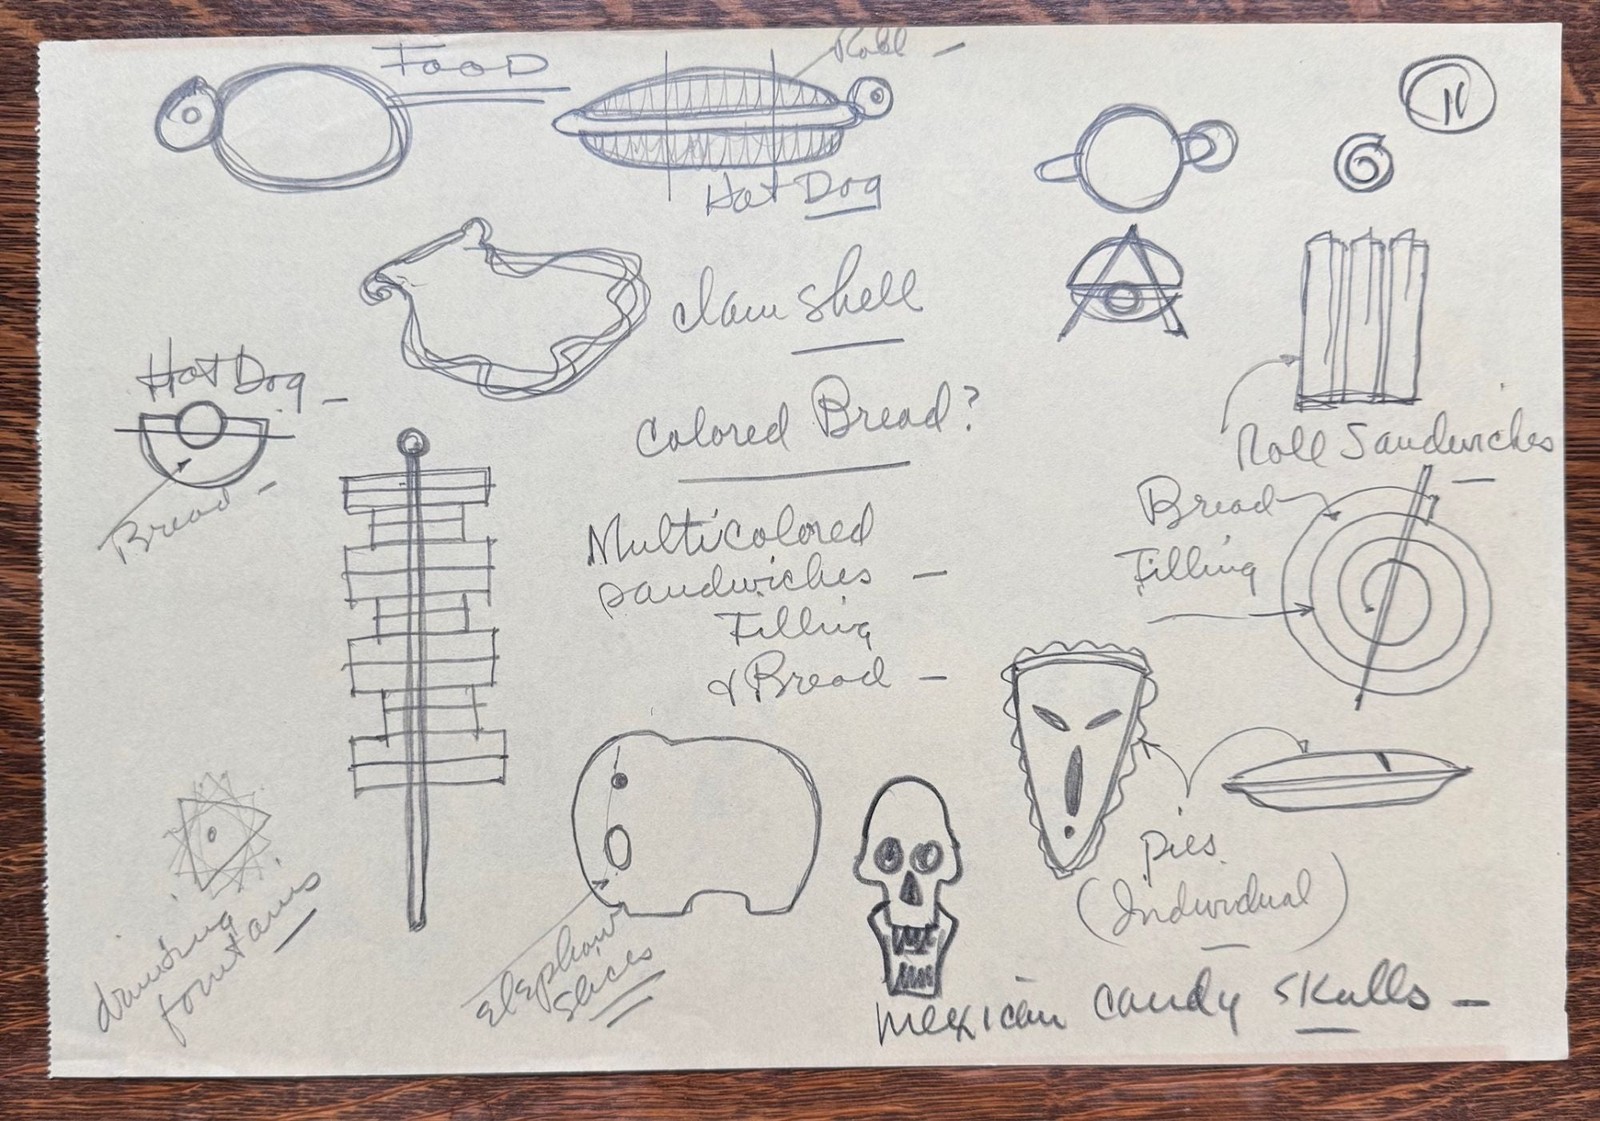 Food
Roll -
Hot Dog
clam shell
Hot Dog -
Bread -
Colored Bread?
Roll Sandwiches -
Bread
Filling
Multicolored
sandwiches -
Filling
& Bread -
pies
(Individual)
drinking
fountains
Elephant
Slices
Mexican candy skulls -